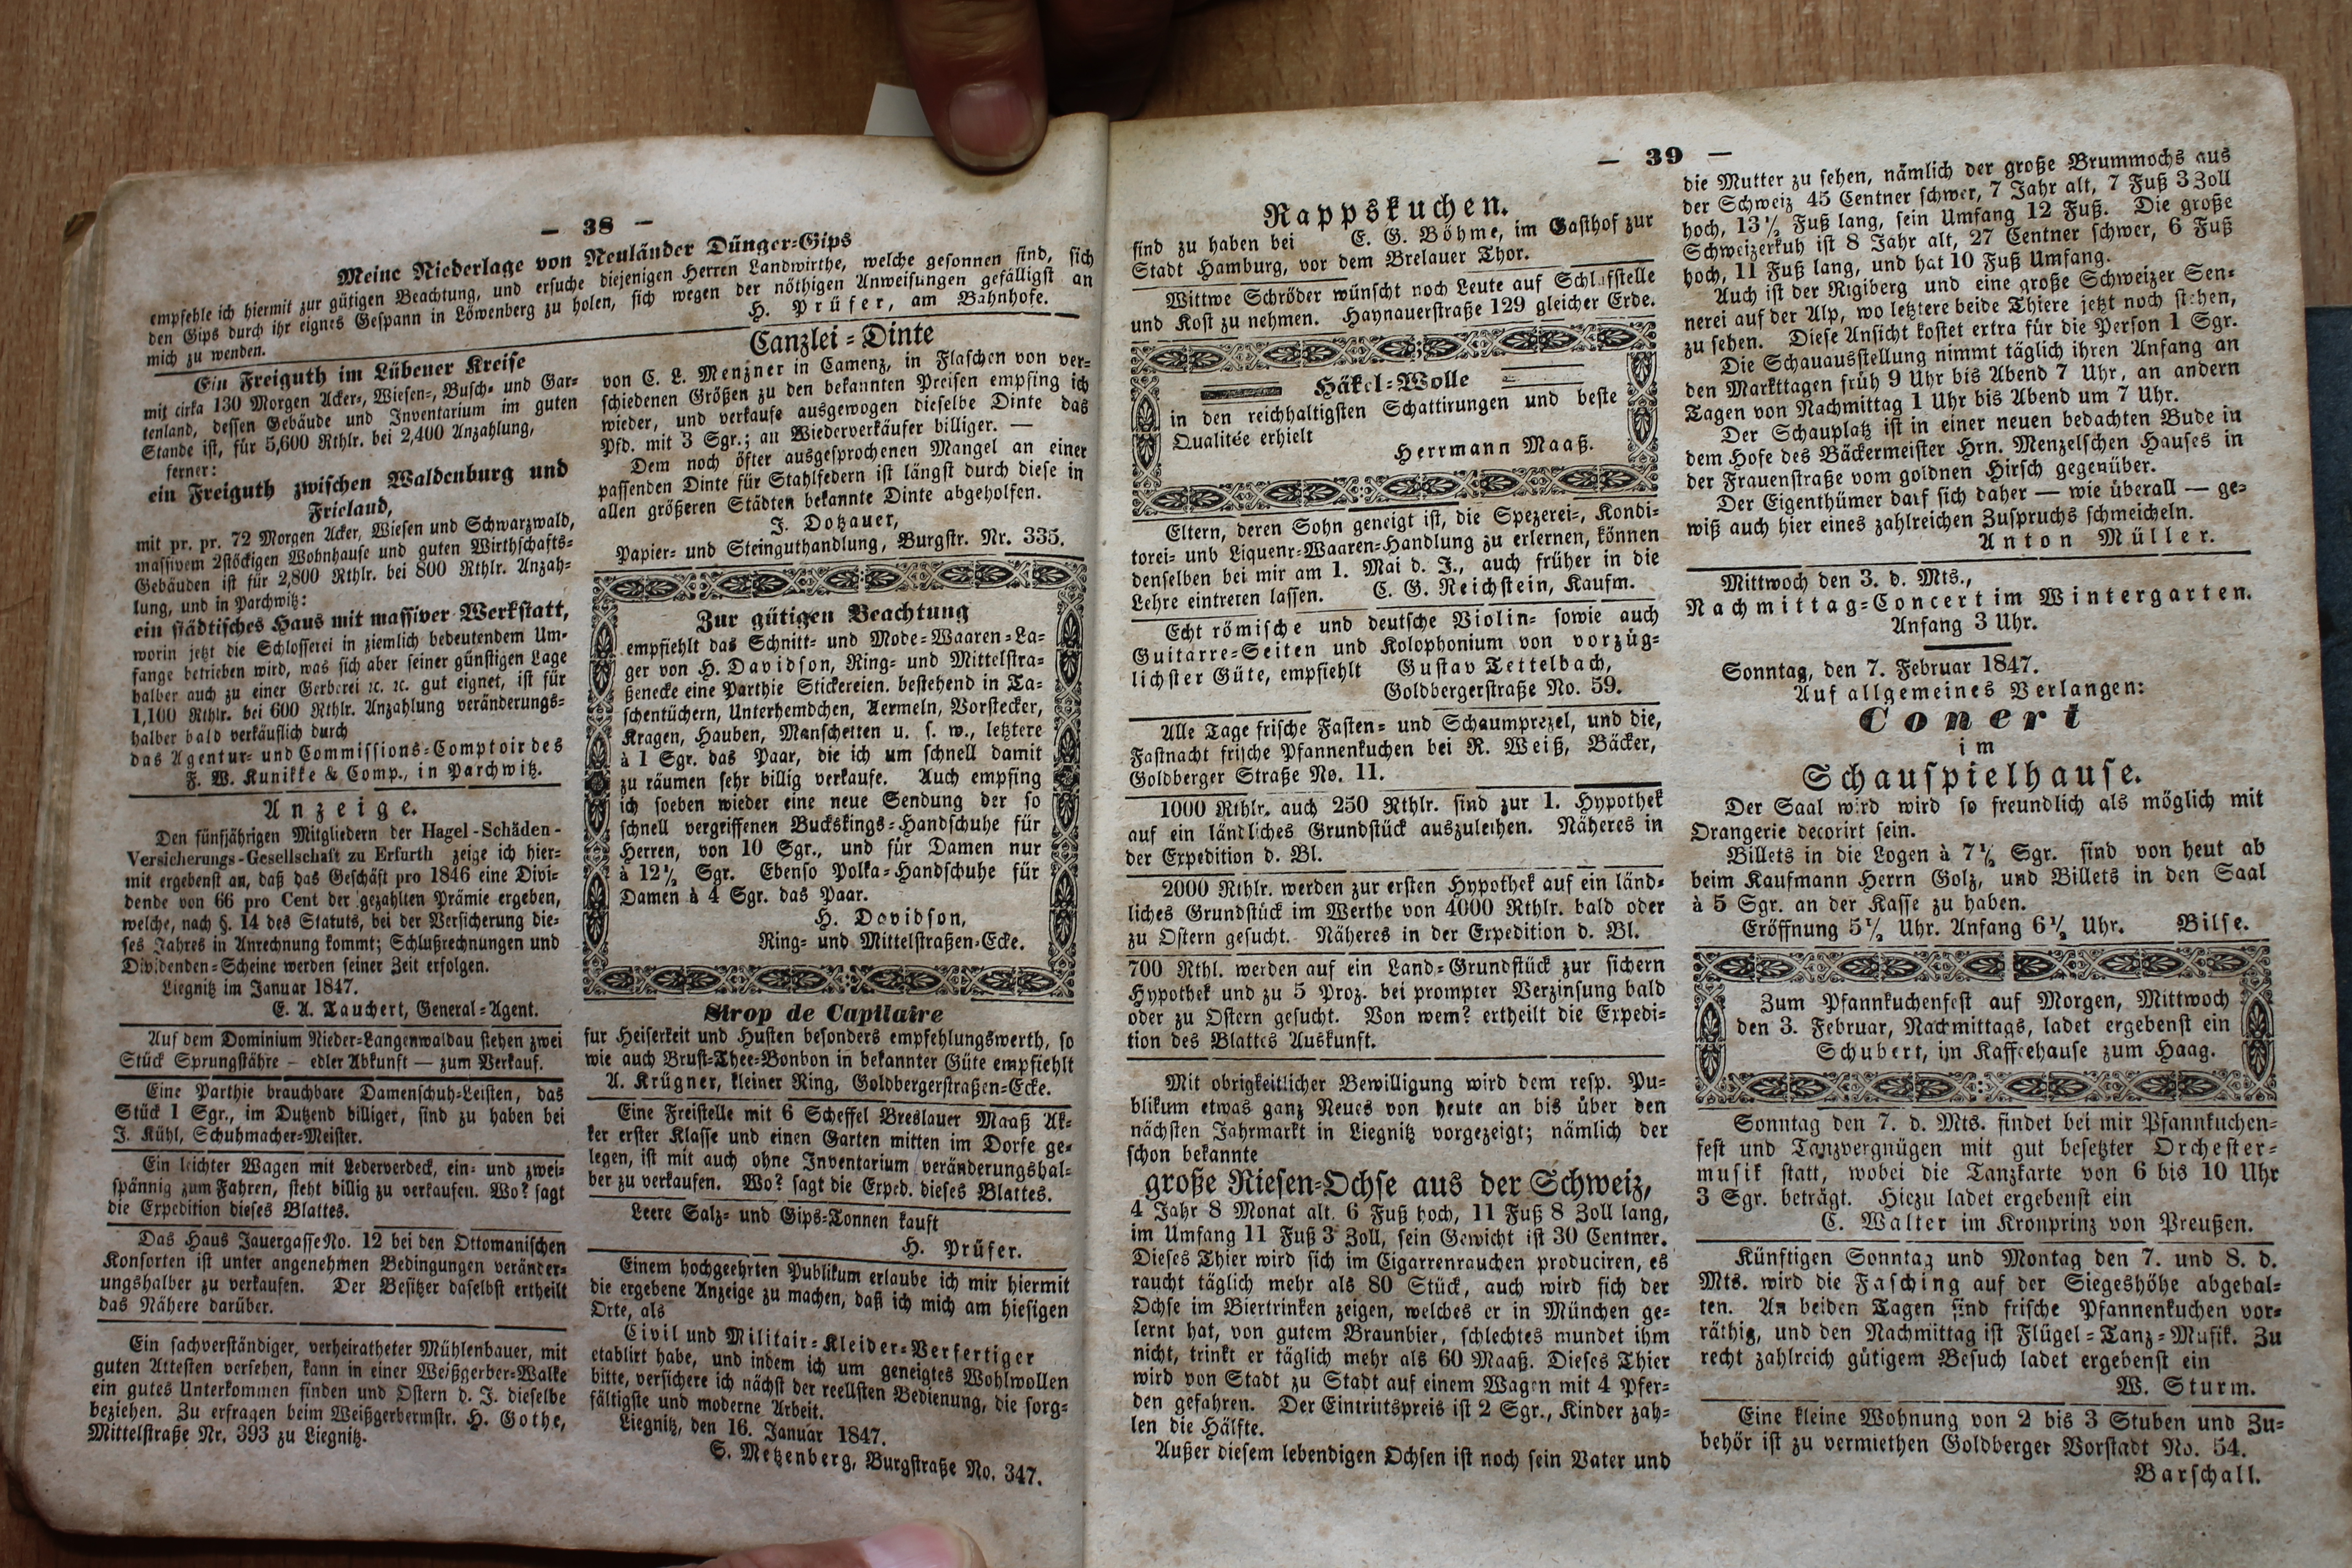 — 38 —
Meine Niederlage von Neuländer Dünger=Gips
empfehle ich hiermit zur gütigen Beachtung, und ersuche diejenigen Herren Landwirthe, welche gesonnen sind, sich
den Gips durch ihr eignes Gespann in Löwenberg zu holen, sich wegen der nöthigen Anweisungen gefälligst an
mich zu wenden.
H. Prüfer, am Bahnhofe.
Ein Freiguth im Lübener Kreise
mit cirka 130 Morgen Acker=, Wiesen=, Busch= und Gar=
tenland, dessen Gebäude und Inventarium im guten
Stande ist, für 5,600 Rthlr. bei 2,400 Anzahlung,
ferner:
ein Freiguth zwischen Waldenburg und
Frieland,
mit pr. pr. 72 Morgen Acker, Wiesen und Schwarzwald,
massivem 2stöckigen Wohnhause und guten Wirthschafts=
Gebäuden ist für 2,800 Rthlr. bei 800 Rthlr. Anzah=
lung, und in Parchwitz:
ein städtisches Haus mit massiver Werkstatt,
worin jetzt die Schlosserei in ziemlich bedeutendem Um=
fange betrieben wird, was sich aber seiner günstigen Lage
halber auch zu einer Gerberei ꝛc. ꝛc. gut eignet, ist für
1,100 Rthlr. bei 600 Rthlr. Anzahlung veränderungs=
halber bald verkäuflich durch
das Agentur= und Commissions=Comptoir des
F. W. Kunikke & Comp., in Parchwitz.
Anzeige.
Den fünfjährigen Mitgliedern der Hagel-Schäden-
Versicherungs-Gesellschaft zu Erfurth zeige ich hier=
mit ergebenst an, daß das Geschäft pro 1846 eine Divi=
dende von 66 pro Cent der gezahlten Prämie ergeben,
welche, nach §. 14 des Statuts, bei der Versicherung die=
ses Jahres in Anrechnung kommt; Schlußrechnungen und
Dividenden=Scheine werden seiner Zeit erfolgen.
Liegnitz im Januar 1847.
E. A. Tauchert, General=Agent.
Auf dem Dominium Nieder=Langenwaldau stehen zwei
Stück Sprungstähre — edler Abkunft — zum Verkauf.
Eine Parthie brauchbare Damenschuh=Leisten, das
Stück 1 Sgr., im Dutzend billiger, sind zu haben bei
J. Kühl, Schuhmacher=Meister.
Ein leichter Wagen mit Lederverdeck, ein= und zwei=
spännig zum Fahren, steht billig zu verkaufen. Wo? sagt
die Expedition dieses Blattes.
Das Haus Jauergasse No. 12 bei den Ottomanischen
Konsorten ist unter angenehmen Bedingungen veränder=
ungshalber zu verkaufen. Der Besitzer daselbst ertheilt
das Nähere darüber.
Ein sachverständiger, verheiratheter Mühlenbauer, mit
guten Attesten versehen, kann in einer Weißgerber=Walke
ein gutes Unterkommen finden und Ostern d. J. dieselbe
beziehen. Zu erfragen beim Weißgerbermstr. H. Gothe,
Mittelstraße Nr. 393 zu Liegnitz.
Canzlei=Dinte
von C. L. Menzner in Camenz, in Flaschen von ver=
schiedenen Größen zu den bekannten Preisen empfing ich
wieder, und verkaufe ausgewogen dieselbe Dinte das
Pfd. mit 3 Sgr.; an Wiederverkäufer billiger. —
Dem noch öfter ausgesprochenen Mangel an einer
passenden Dinte für Stahlfedern ist längst durch diese in
allen größeren Städten bekannte Dinte abgeholfen.
J. Dotzauer,
Papier= und Steinguthandlung, Burgstr. Nr. 335.
Zur gütigen Beachtung
empfiehlt das Schnitt= und Mode=Waaren=La=
ger von H. Davidson, Ring= und Mittelstra=
ßenecke eine Parthie Stickereien. bestehend in Ta=
schentüchern, Unterhemdchen, Aermeln, Vorstecker,
Kragen, Hauben, Manschetten u. s. w., letztere
à 1 Sgr. das Paar, die ich um schnell damit
zu räumen sehr billig verkaufe. Auch empfing
ich soeben wieder eine neue Sendung der so
schnell vergriffenen Buckskings=Handschuhe für
Herren, von 10 Sgr., und für Damen nur
à 12½ Sgr. Ebenso Polka=Handschuhe für
Damen à 4 Sgr. das Paar.
H. Davidson,
Ring= und Mittelstraßen=Ecke.
Sirop de Capilaire
fur Heiserkeit und Husten besonders empfehlungswerth, so
wie auch Brust=Thee=Bonbon in bekannter Güte empfiehlt
A. Krügner, kleiner Ring, Goldbergerstraßen=Ecke.
Eine Freistelle mit 6 Scheffel Breslauer Maaß Ak=
ker erster Klasse und einen Garten mitten im Dorfe ge=
legen, ist mit auch ohne Inventarium veränderungshal=
ber zu verkaufen. Wo? sagt die Exped. dieses Blattes.
Leere Salz= und Gips=Tonnen kauft
H. Prüfer.
Einem hochgeehrten Publikum erlaube ich mir hiermit
die ergebene Anzeige zu machen, daß ich mich am hiesigen
Orte, als
Civil und Militair=Kleider=Verfertiger
etablirt habe, und indem ich um geneigtes Wohlwollen
bitte, versichere ich nächst der reellsten Bedienung, die sorg=
fältigste und moderne Arbeit.
Liegnitz, den 16. Januar 1847.
S. Metzenberg, Burgstraße No. 347.
— 39 —
Rappskuchen.
sind zu haben bei E. G. Böhme, im Gasthof zur
Stadt Hamburg, vor dem Brelauer Thor.
Wittwe Schröder wünscht noch Leute auf Schlafstelle
und Kost zu nehmen. Haynauerstraße 129 gleicher Erde.
Häkel=Wolle
in den reichhaltigsten Schattirungen und beste
Qualitée erhielt
Herrmann Maaß.
Eltern, deren Sohn geneigt ist, die Spezerei=, Kondi=
torei= unb Liquenr=Waaren=Handlung zu erlernen, können
denselben bei mir am 1. Mai d. J., auch früher in die
Lehre eintreten lassen. C. G. Reichstein, Kaufm.
Echt römische und deutsche Violin= sowie auch
Guitarre=Seiten und Kolophonium von vorzüg=
lichster Güte, empfiehlt Gustav Tettelbach,
Goldbergerstraße No. 59.
Alle Tage frische Fasten= und Schaumprezel, und die,
Fastnacht frische Pfannenkuchen bei R. Weiß, Bäcker,
Goldberger Straße No. 11.
1000 Rthlr. auch 250 Rthlr. sind zur 1. Hypothek
auf ein ländliches Grundstück auszuleihen. Näheres in
der Expedition d. Bl.
2000 Rthlr. werden zur ersten Hypothek auf ein länd=
liches Grundstück im Werthe von 4000 Rthlr. bald oder
zu Ostern gesucht. Näheres in der Expedition d. Bl.
700 Rthl. werden auf ein Land=Grundstück zur sichern
Hypothek und zu 5 Proz. bei prompter Verzinsung bald
oder zu Ostern gesucht. Von wem? ertheilt die Expedi=
tion des Blattes Auskunft.
Mit obrigkeitlicher Bewilligung wird dem resp. Pu=
blikum etwas ganz Neues von heute an bis über den
nächsten Jahrmarkt in Liegnitz vorgezeigt; nämlich der
schon bekannte
große Riesen=Ochse aus der Schweiz,
4 Jahr 8 Monat alt. 6 Fuß hoch, 11 Fuß 8 Zoll lang,
im Umfang 11 Fuß 3 Zoll, sein Gewicht ist 30 Centner.
Dieses Thier wird sich im Cigarrenrauchen produciren, es
raucht täglich mehr als 80 Stück, auch wird sich der
Ochse im Biertrinken zeigen, welches er in München ge=
lernt hat, von gutem Braunbier, schlechtes mundet ihm
nicht, trinkt er täglich mehr als 60 Maaß. Dieses Thier
wird von Stadt zu Stadt auf einem Wagen mit 4 Pfer=
den gefahren. Der Eintrittspreis ist 2 Sgr., Kinder zah=
len die Hälfte.
Außer diesem lebendigen Ochsen ist noch sein Vater und
die Mutter zu sehen, nämlich der große Brummochs aus
der Schweiz 45 Centner schwer, 7 Jahr alt, 7 Fuß 3 Zoll
hoch, 13½ Fuß lang, sein Umfang 12 Fuß. Die große
Schweizerkuh ist 8 Jahr alt, 27 Centner schwer, 6 Fuß
hoch, 11 Fuß lang, und hat 10 Fuß Umfang.
Auch ist der Rigiberg und eine große Schweizer Sen=
nerei auf der Alp, wo letztere beide Thiere jetzt noch stehen,
zu sehen. Diese Ansicht kostet extra für die Person 1 Sgr.
Die Schauausstellung nimmt täglich ihren Anfang an
den Markttagen früh 9 Uhr bis Abend 7 Uhr, an andern
Tagen von Nachmittag 1 Uhr bis Abend um 7 Uhr.
Der Schauplatz ist in einer neuen bedachten Bude in
dem Hofe des Bäckermeister Hrn. Menzelschen Hauses in
der Frauenstraße vom goldnen Hirsch gegenüber.
Der Eigenthümer darf sich daher — wie überall — ge=
wiß auch hier eines zahlreichen Zuspruchs schmeicheln.
Anton Müller.
Mittwoch den 3. d. Mts.,
Nachmittag=Concert im Wintergarten.
Anfang 3 Uhr.
Sonntag, den 7. Februar 1847.
Auf allgemeines Verlangen:
Conert
im
Schauspielhause.
Der Saal wird wird so freundlich als möglich mit
Orangerie decorirt sein.
Billets in die Logen à 7½ Sgr. sind von heut ab
beim Kaufmann Herrn Golz, und Billets in den Saal
à 5 Sgr. an der Kasse zu haben.
Eröffnung 5½ Uhr. Anfang 6½ Uhr. Bilse.
Zum Pfannkuchenfest auf Morgen, Mittwoch
den 3. Februar, Nachmittags, ladet ergebenst ein
Schubert, im Kaffeehause zum Haag.
Sonntag den 7. d. Mts. findet bei mir Pfannkuchen=
fest und Tanzvergnügen mit gut besetzter Orchester=
musik statt, wobei die Tanzkarte von 6 bis 10 Uhr
3 Sgr. beträgt. Hiezu ladet ergebenst ein
C. Walter im Kronprinz von Preußen.
Künftigen Sonntag und Montag den 7. und 8. d.
Mts. wird die Fasching auf der Siegeshöhe abgehal=
ten. An beiden Tagen sind frische Pfannenkuchen vor=
räthig, und den Nachmittag ist Flügel=Tanz=Musik. Zu
recht zahlreich gütigem Besuch ladet ergebenst ein
W. Sturm.
Eine kleine Wohnung von 2 bis 3 Stuben und Zu=
behör ist zu vermiethen Goldberger Vorstadt No. 54.
Barschall.